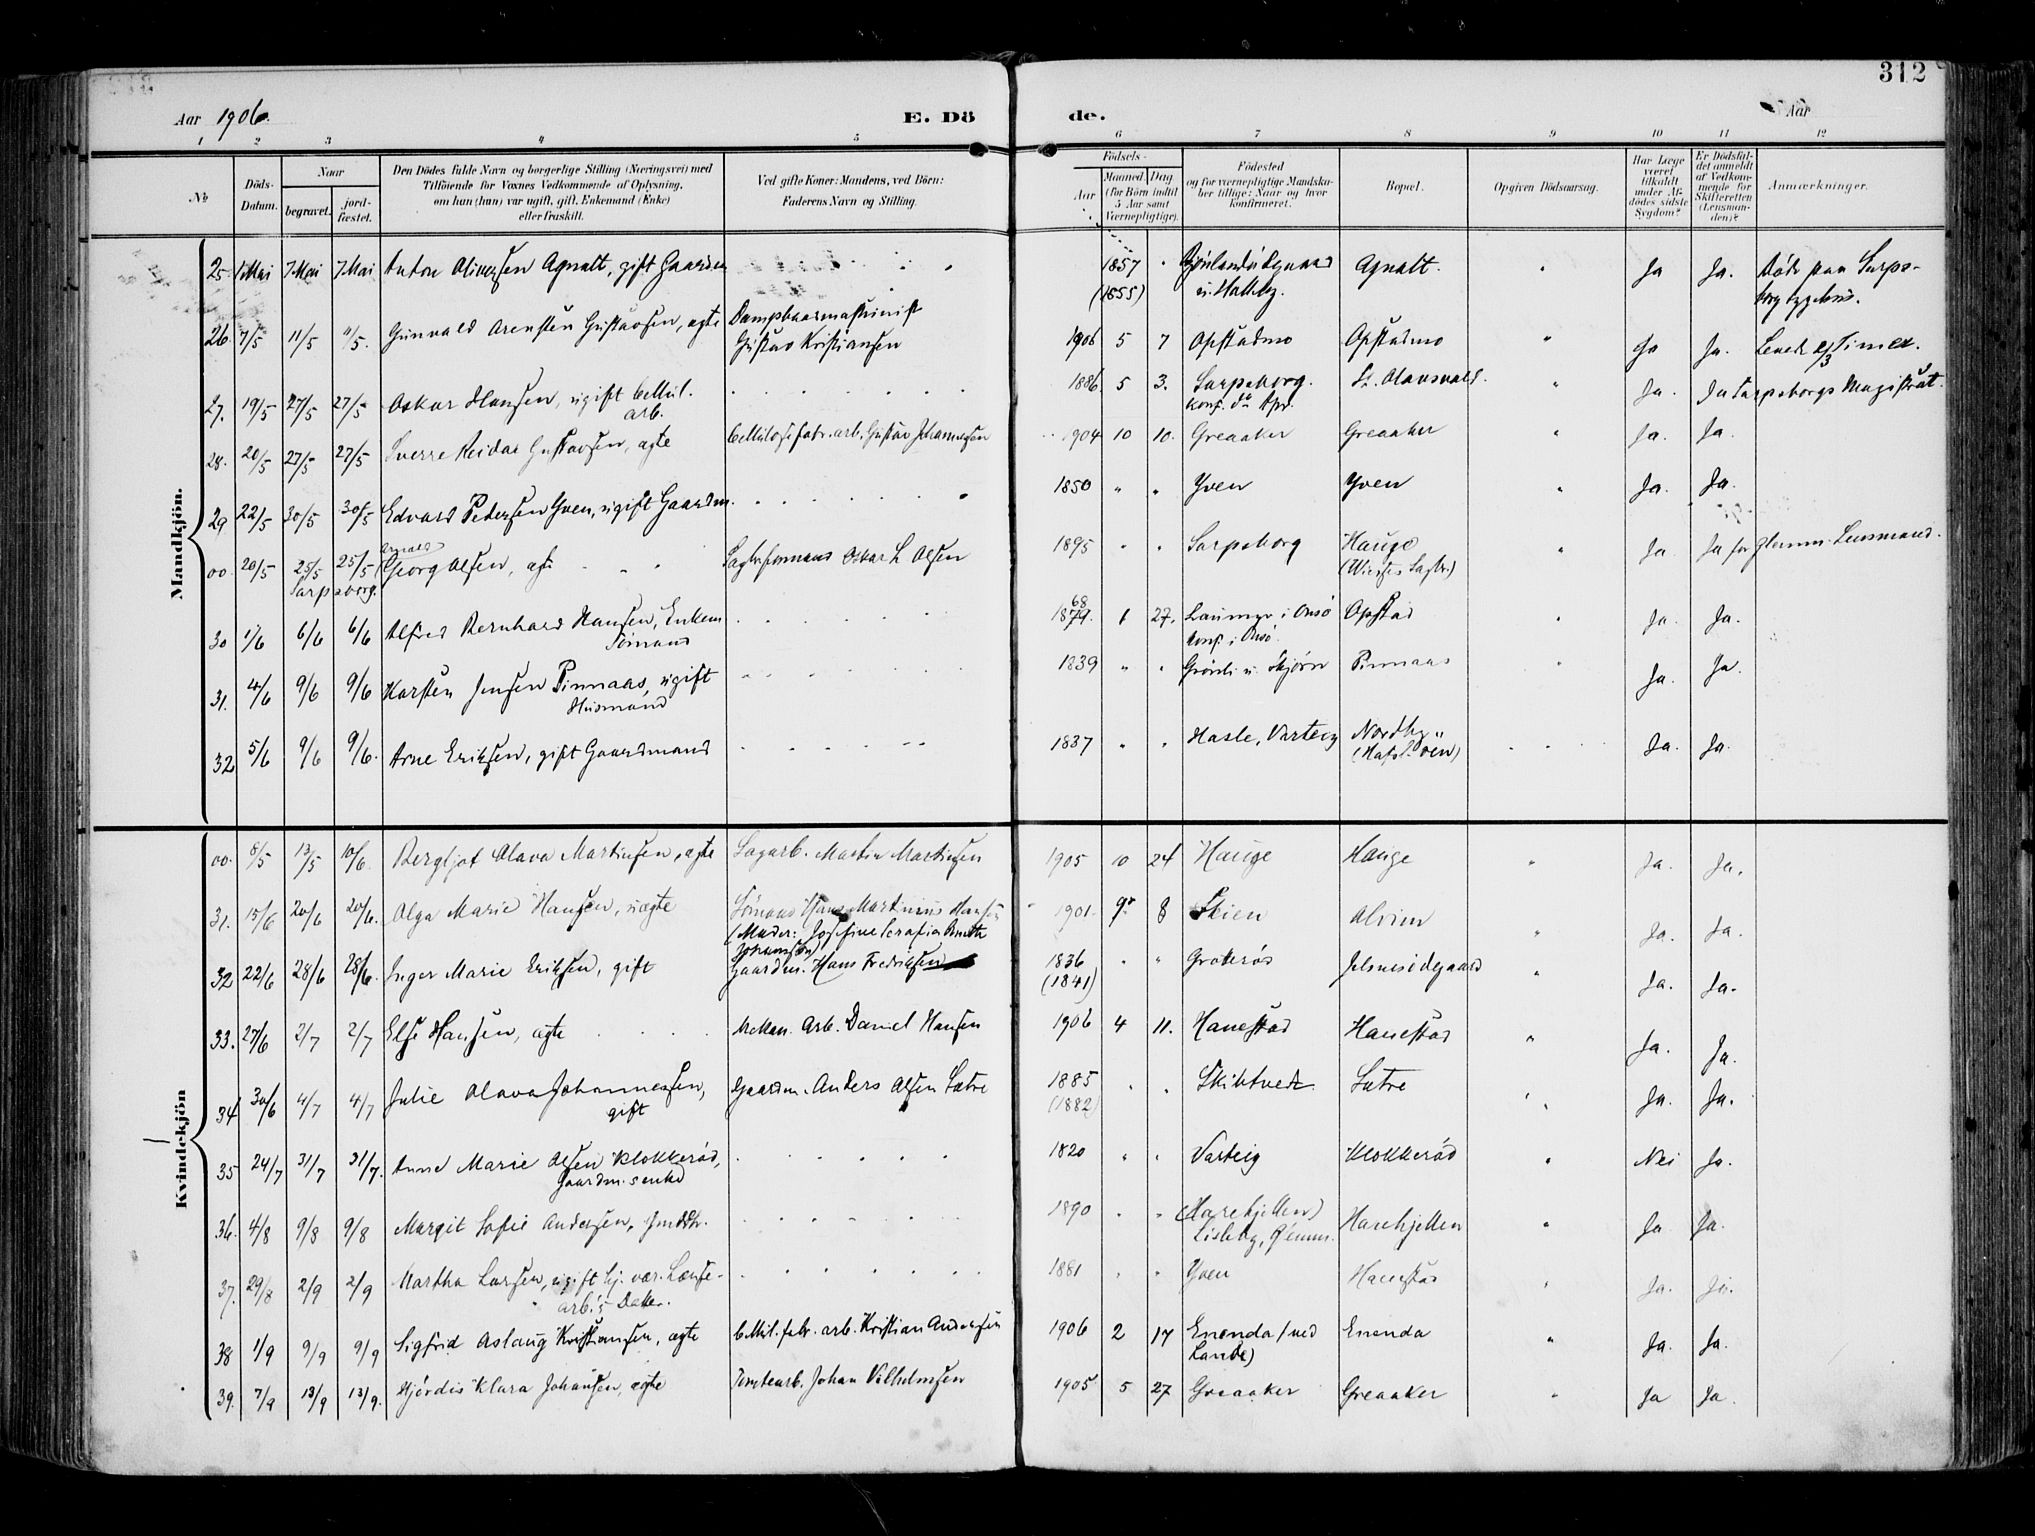 312
Aar 1906.
E. Dö de.
Aar
1 2 3 4 5 6 7 8 9 10 11 12
No
Döds-Datum.
Naar
begravet.
jord-fæstet.
Den Dödes fulde Navn og borgerlige Stilling (Næringsvei) med
Tilföiende for Voxnes Vedkommende af Oplysning,
om han (hun) var ugift, gift, Enkemand (Enke)
eller fraskilt.
Ved gifte Koner: Mandens, ved Börn:
Faderens Navn og Stilling.
Födsels-
Aar
Maaned Dag
(for Börn indtil
5 Aar samt
Værnepligtige).
Födested
og for værnepligtige Mandska-
ber tillige: Naar og hvor
konfirmeret.
Bopæl.
Opgiven Dödsaarsag.
Har Læge
været
tilkaldt
under Af-
dödes sidste
Sygdom?
Er Dödsfal-
det anmeldt
af Vedkom-
mende for
Skifteretten
(Lensman-
den)?
Anmærkninger.
Mandkjön.
25 1 Mai 7 Mai 7 Mai Anton Oliversen Agnalt, gift Gaardm 1857 Agnalt. Ja Ja. Döde paa Sarps-
(1855) borg sygehus.
26. 7/5 11/5 11/5. Gunvald Arensten Gustavsen, ægte Dampbaasmaskinist
Gustav Kristiansen 1906 5 7 Opstadmo Opstadmo Ja Ja. Levede 2/3 Timer.
27. 19/5 27/5 27/5 Oskar Hansen, ugift Cellul.
arb. 1886. 5 3. Sarpsborg. St. Olavsvold. Ja. Ja Sarpsborgs Magistrat.
28. 20/5 27/5 27/5 Sverre Reidar Gustavsen, ægte Cellulosefabr. arb. Gustav Johannesen 1904 10 10. Greaaker Greaaker Ja. Ja.
29. 22/5 30/5 30/5 Edvard Petersen Yven, ugift Gaardm. 1850 Yven Yven Ja. Ja.
00. 20/5 25/5 25/5 Arnold
Georg Olsen, ægte Oskar L. Olsen 1895 Sarpsborg Hauge Ja Ja for Glemm. Lensmand.
Sarpsborg.
30 1/6 6/6 6/6 Alfred Bernhard Hansen, Enkem
Sömand 68
1879. 1 27. i Onsö Opstad Ja. Ja.
konf. i Onsö.
31. 4/6 9/6 9/6 Karsten Jensen Pinnaas, ugift
Husmand 1839 Grönli u. Skjörn Pinnaas Ja. Ja.
32 5/6 9/6 9/6. Arne Eriksen, gift Gaardmand 1837 Hasle, Varteig Nordby Ja. Ja.
(Hafsl. öen)
Kvindekjön
00. 8/5 13/5 10/6. Bergljot Olava Martinsen, ægte Sagarb. Martin Martinsen 1905 10 24 Hauge Hauge Ja. Ja.
31. 15/6 20/6 20/6. Olga Marie Hansen, uægte Sömand Hans Martinius Hansen
(Moder: Josefine Serafia
Johansen) 1901. 9 8 Skien Alvim Ja. Ja.
32 22/6 28/6 28/6. Inger Marie Eriksen, gift Gaardm. Hans Fredriksen 1836 Graterös Jelsnesödegaard Ja. Ja.
(1841)
33. 27/6 2/7 2/7 Else Hansen, ægte Mekan. Arb. Daniel Hansen 1906 4 11. Hanestad Hanestad Ja. Ja.
34 30/6 4/7 4/7 Julie Olava Johannesen,
gift Gaardm. Anders Olsen Sætre 1885 Skibtvedt Sætre Ja. Ja.
(1882)
35 24/7 31/7 31/7. Anne Marie Olsen Klokkeröd,
Gaardm.s enke 1820 Varteig Klokkeröd Nei Ja.
36. 4/8 9/8 9/8 Margit Sofie Andersen, 1890 (Harehjellen) Harehjellen Ja Ja.
Lisleby, Glemm.
37. 29/8 2/9 2/9 Martha Larsen, ugift hj. vær. Lænse-
arb.'s Datter. 1881 Yven Hanestad Ja. Ja.
38 1/9 9/9 9/9 Sigfrid Aslaug Kristiansen, ægte Cellul. fabr. arb. Kristian Andersen 1906 2 17 Enenda (ved Enenda Ja. Ja.
Lande)
39. 7/9 13/9 13/9. Hjördis Klara Johansen, ægte Tomtearb. Johan Vilhelmsen 1905 5 27 Greaaker Greaaker Ja Ja.